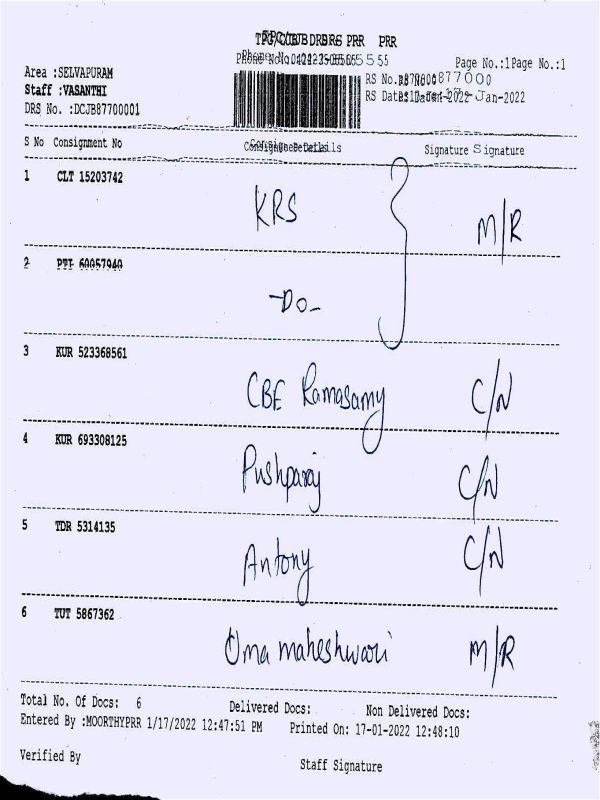 PRR
Area :SELVAPURAM
Page No.:1 Page No.:1
Staff :VASANTHI
DRS No. :DCJB87700001
Jan-2022
S No Consignment No Signature Signature
1 CLT 15203742 KRS M/R
2 -Do-
3 KUR 523368561 CBE Ramasamy C/N
4 KUR 693308125 Pushparaj C/N
5 TDR 5314135 Antony C/N
6 TUT 5867362 Uma maheshwari M/R
Total No. Of Docs: 6 Delivered Docs: Non Delivered Docs:
Entered By :MOORTHYPRR 1/17/2022 12:47:51 PM Printed On: 17-01-2022 12:48:10
Verified By Staff Signature